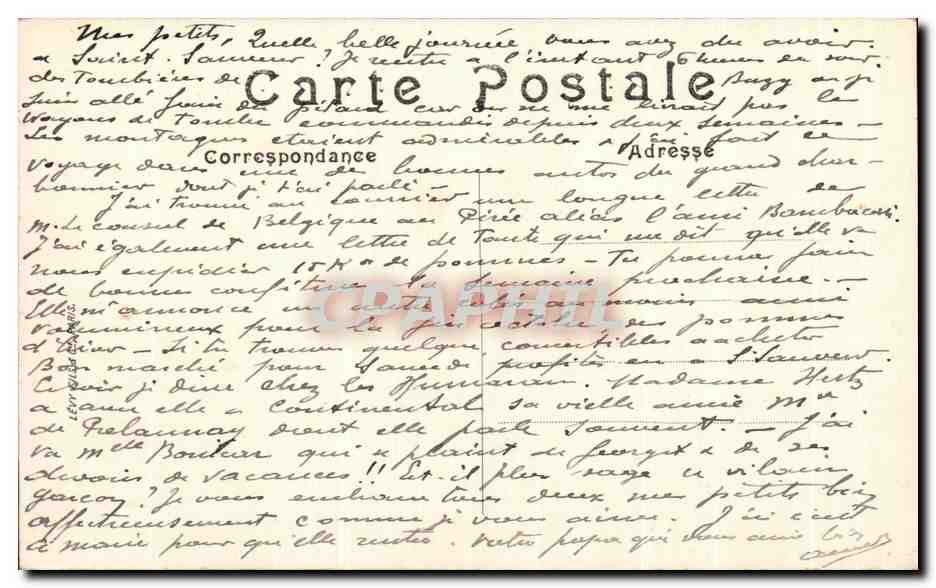 Mes petits, Quelle belle journée vous avez du avoir
a Saint-Sauveur! Je rentre a l'instant 6 heures du soir
des Tombières de Buzy ou j'
Carte Postale
suis allé car on ne me livrait pas les
wagons de Tombe commandés depuis deux semaines -
Les montagnes etaient admirables & j'ai fait ce
Correspondance Adresse
voyage dans une de bonnes autos du grand char-
bonnier dont je t'ai parlé -
J'ai trouvé au courrier une longue lettre de
M. Le consul de Belgique au Pirée alias l'ami
J'ai également une lettre de Tante qui me dit qu'elle va
nous expédier 15 Kos de pommes - Tu pourras faire
de bonnes confitures la semaine prochaine. -
Elle m'annonce un autre colis au moins aussi
volumineux pour la fin octobre, des pommes
d'hiver - Si tu trouves quelques comestibles a acheter
Bon marché pour Samedi profites en a St Sauveur.
Ce soir je dine chez les Madame
a avec elle a Continental sa vieille amie Me
de Prelaunay dont elle parle souvent. - J'ai
vu Melle qui se plaint de Georges & de ses
devoirs de vacances!! Est-il plus sage ce vilain
garçon? Je vous embrasse tous deux mes petits bien
affectueusement comme je vous aime. J'ai écrit
a mamie pour qu'elle rentre. Votre papa qui vous aime bien
LEVY FILS & Cie PARIS.
CPAPHIL